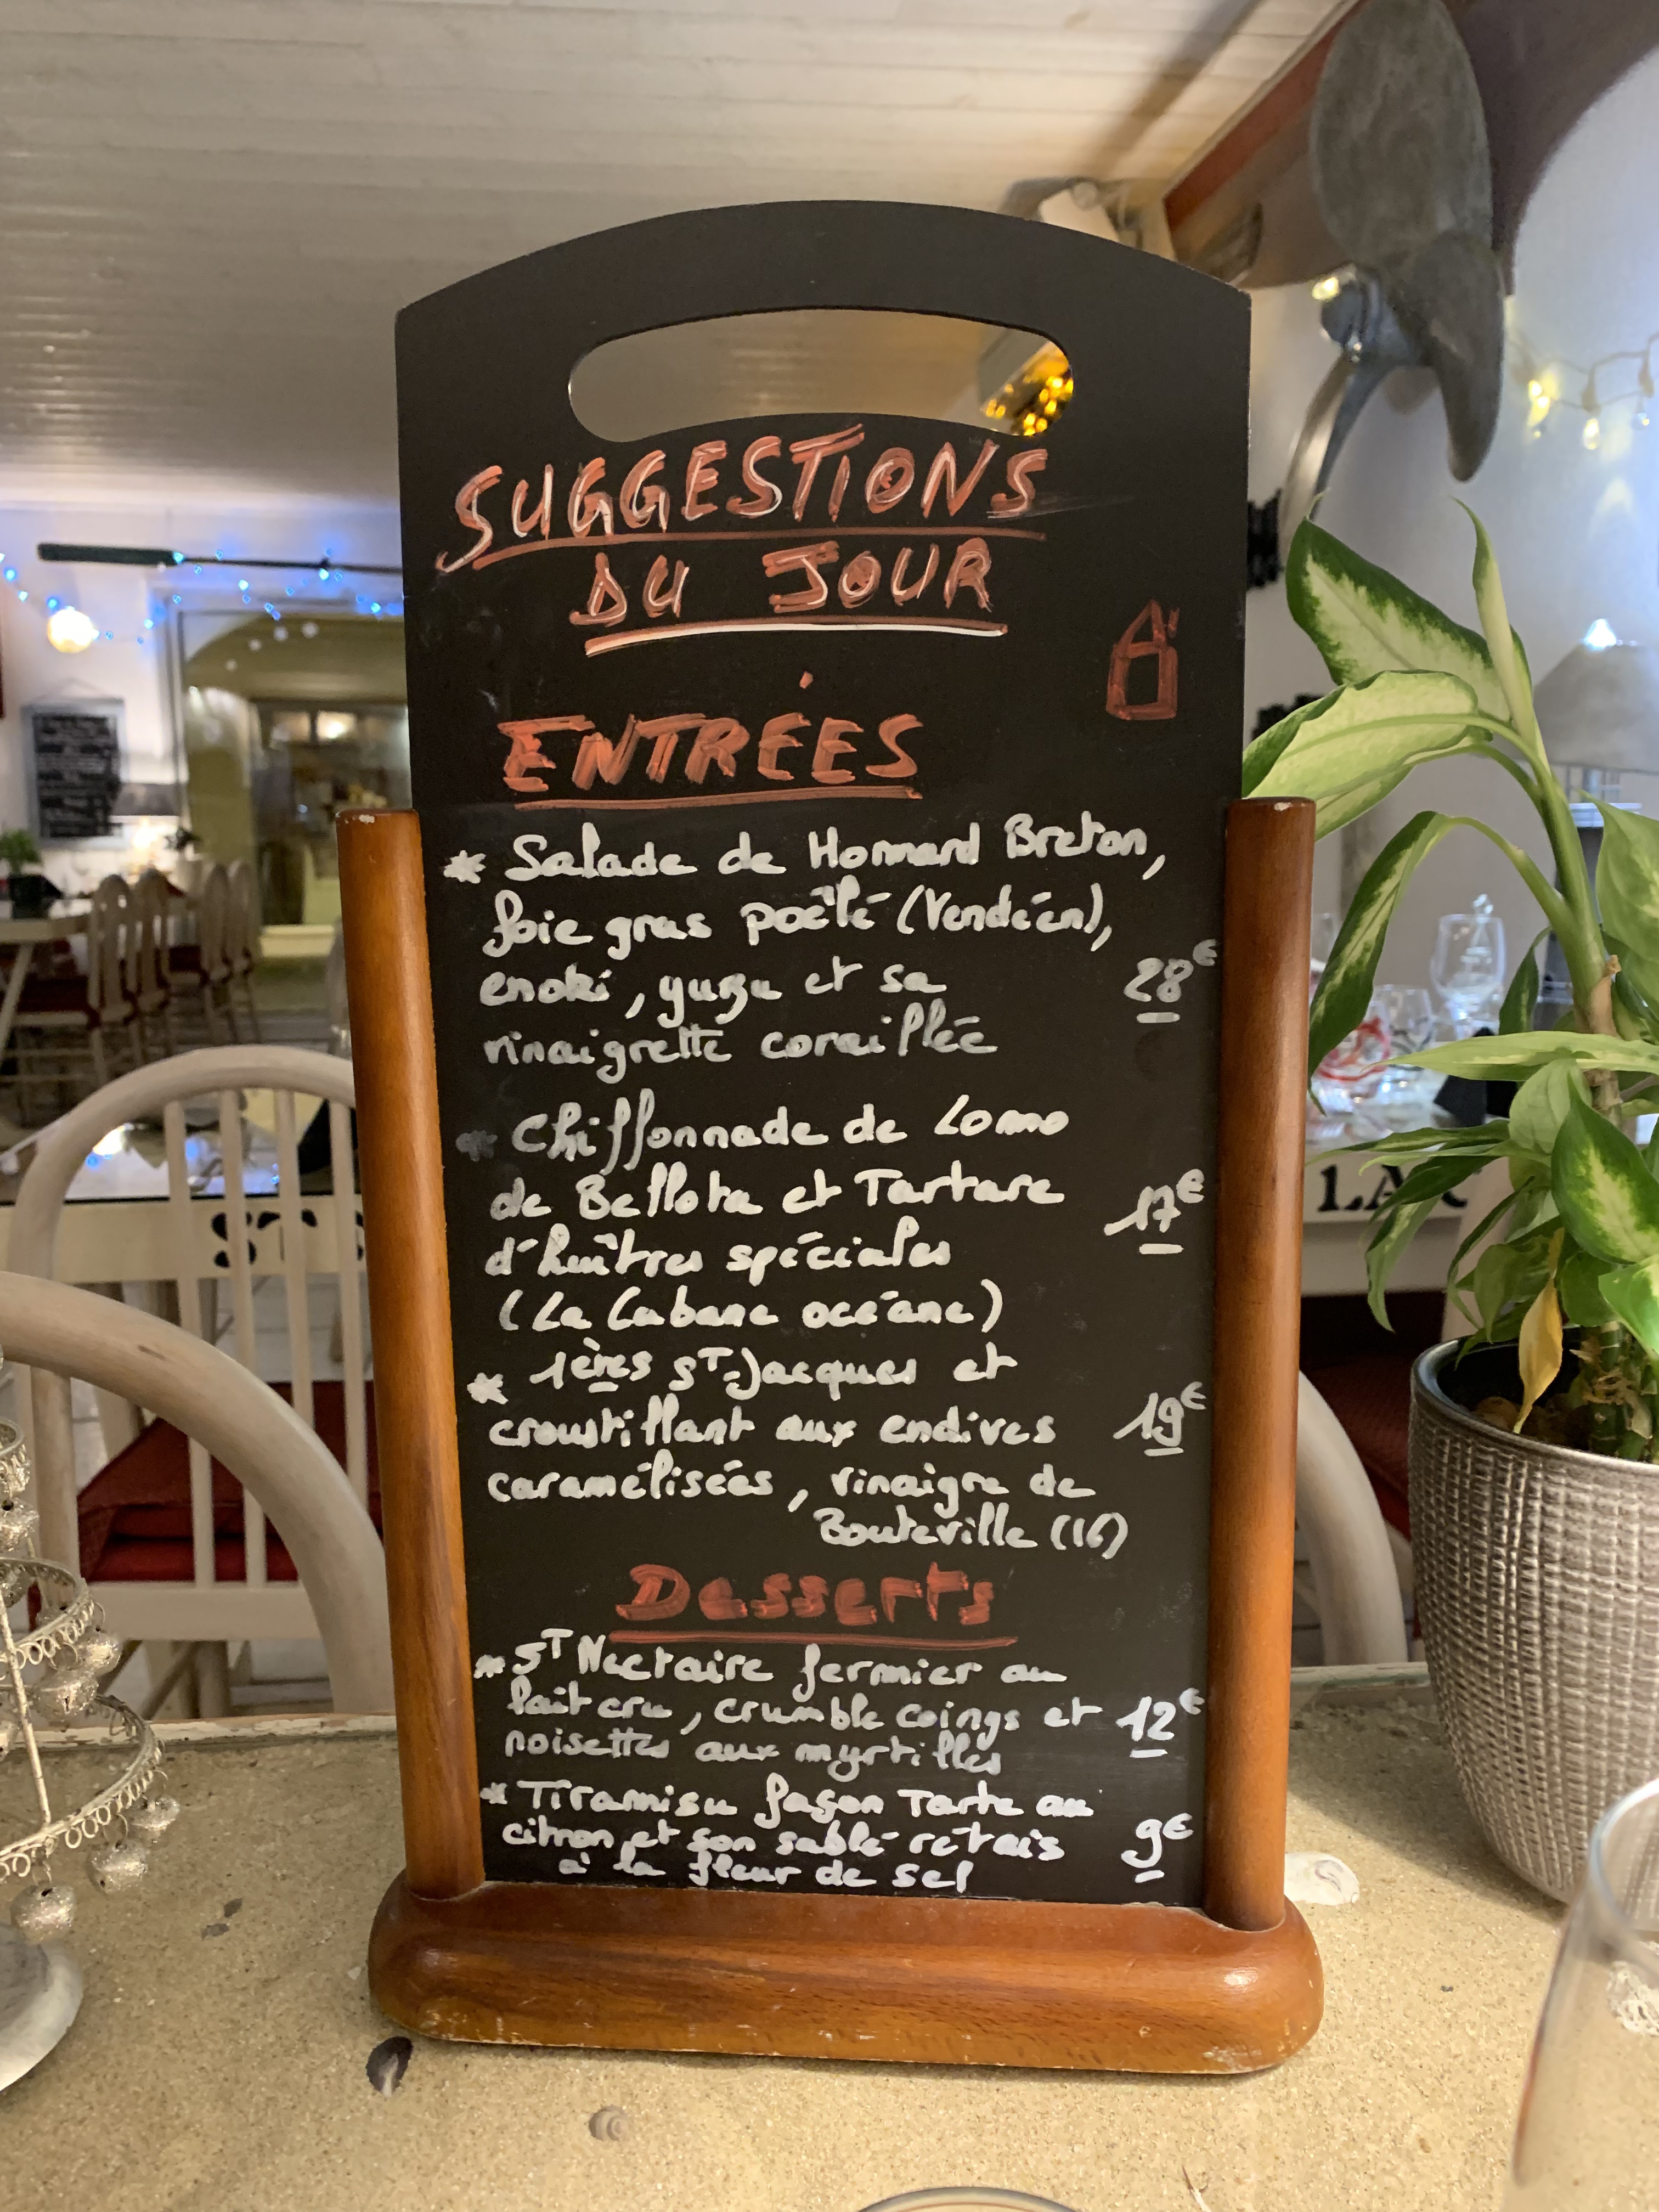 SUGGESTIONS
DU JOUR
ENTRÉES
* Salade de Homard Breton,
foie gras poêlé (Vendéen),
enoki, yuzu et sa 28€
vinaigrette coraillée
* Chiffonnade de Lomo
de Bellota et Tartare 17€
d'huîtres spéciales
(La Cabane océane)
* 1ères ST-Jacques et
croustillant aux endives 19€
caramélisées, vinaigre de
Bouteville (16)
Desserts
* ST Nectaire fermier au
lait cru, crumble coings et 12€
noisettes aux myrtilles
* Tiramisu façon Tarte au
citron et son sablé rétais 9€
à la fleur de sel